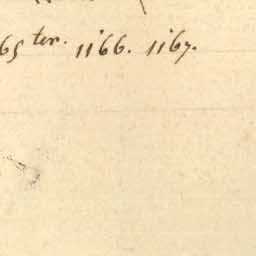 65 ter. 1166. 1167.